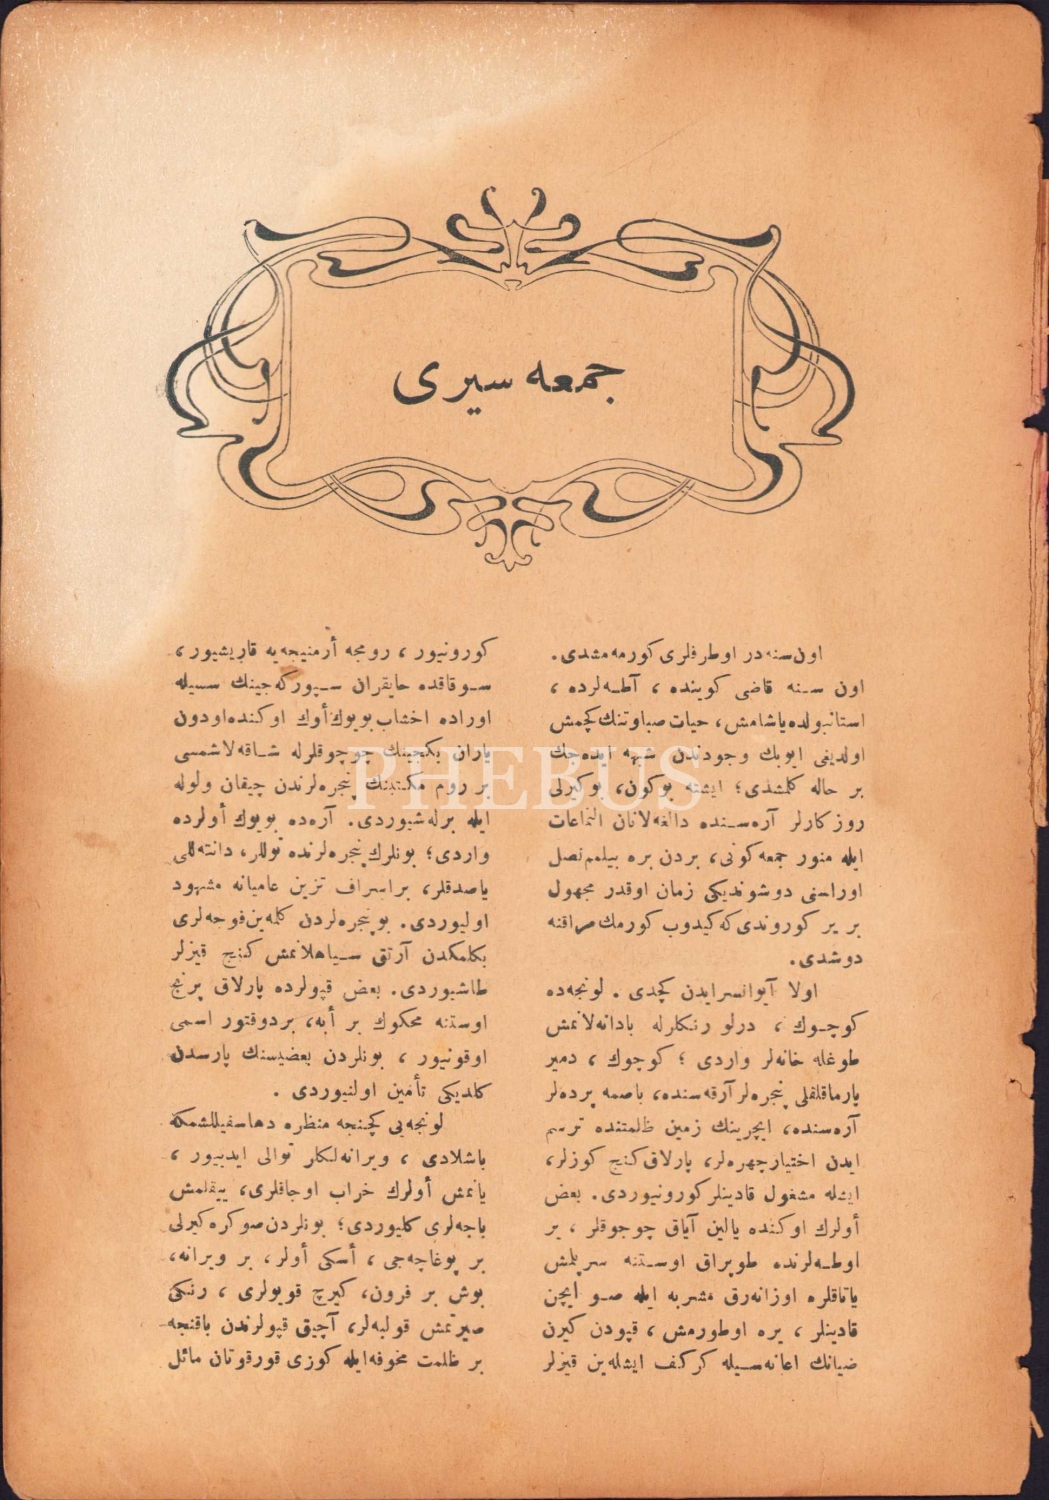 جمعه سیری
اون سنه در او طرفلری کورمه مشدی.
اون سنه قاضی کوینده ، آطه لرده ،
استانبولده یاشامش، حیات صباوتنك کچمش
اولدیغی ایوبك وجودندن شبهه ایده جك
بر حاله کلمشدی؛ ایشته بوکون، بو کیرلی
روزکارلر آره سنده دالغه لانان التماعات
ایله منور جمعه کونی، بردن بره بیلمم نصل
اوراسنی دوشوندیکی زمان اوقدر مجهول
بر یر کوروندی که کیدوب کورمك مراقنه
دوشدی.
اولا آیوانسرایدن کچدی . لونجه ده
کوچوك ، درلو رنکلرله بادانه لانمش
طوغله خانه لر واردی ؛ کوچوك ، دمیر
پارماقلقلی پنجره لر آرقه سنده، باصمه پرده لر
آره سنده، ایچرینك زمین ظلمتنده ترسم
ایدن اختیار چهره لر، پارلاق کنج کوزلر،
ایشله مشغول قادینلر کورونیوردی. بعض
أولرك اوکنده یالین آیاق چوجوقلر ، بر
اوطه لرنده طوپراق اوستنه سریلمش
یاتاقلره اوزانه رق مشربه ایله صو ایچن
قادینلر ، یره اوطورمش ، قپودن کیرن
ضیانك اعانه سیله کرکف ایشله ین قیزلر
کورونیور ، رومجه أرمنیجه یه قاریشیور ،
سوقاقده حایقران سپورکه جینك سسیله
اوراده اخشاب بویوك أوك اوکنده اودون
یاران بکجینك چوجوقلرله شاقه لاشمسی
بر روم مکتبنك پنجره لرندن چیقان ولوله
ایله برله شیوردی. آره ده بویوك أولرده
واردی؛ بونلرك پنجره لرنده توللر، دانته للی
یاصدقلر، بر اسراف تزین عامیانه مشهود
اولیوردی. بو پنجره لردن کلمه ین قوجه لری
بکلمکدن آرتق سیاهلانمش کنج قیزلر
طاشیوردی. بعض قپولرده پارلاق پرنج
اوستنه محکوك بر أبه، بر دوقتور اسمی
اوقونیور ، بونلردن بعضیسنك پارسدن
کلدیکی تأمین اولنیوردی .
لونجه یی کچنجه منظره دها سفیللشمکه
باشلادی ، ویرانه لکلر توالی ایدییور ،
یانمش أولرك خراب اوجاقلری، ییقلمش
باجه لری کلیوردی؛ بونلردن صوکره کیرلی
بر پوغاچه جی ، أسکی أولر ، بر ویرانه،
بوش بر فرون، کیرچ قویولری ، رنکی
صیرتمش قولبه لر، آچیق قپولرندن باقنجه
بر ظلمت مخوفه ایله کوزی قورقوتان مائل
PHEBUS